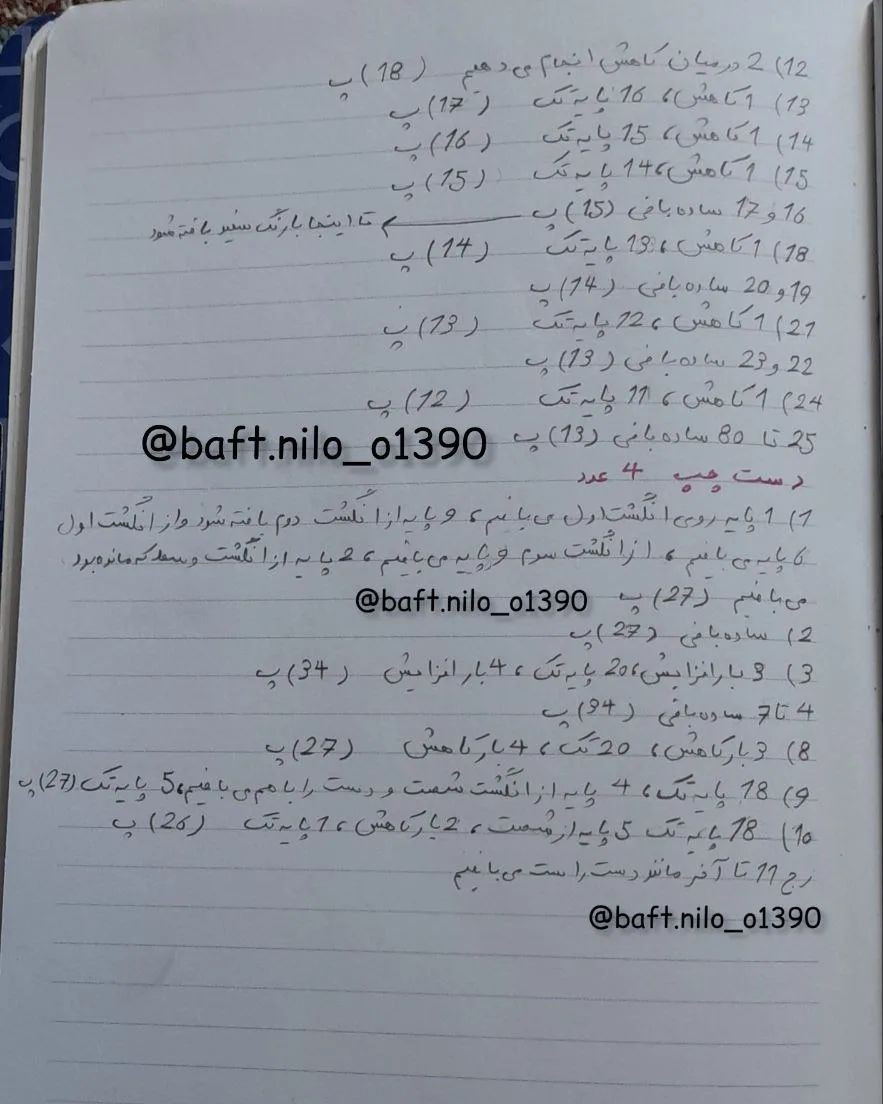 12) 2 درمیان کاهش انجام می دهیم (18)پ
13) 1 کاهش، 16 پایه تک (17)پ
14) 1 کاهش، 15 پایه تک (16)پ
15) 1 کاهش، 14 پایه تک (15)پ
16 و 17 ساده بافی (15)پ تا اینجا با رنگ سفید بافته شود
18) 1 کاهش، 13 پایه تک (14)پ
19 و 20 ساده بافی (14)پ
21) 1 کاهش، 12 پایه تک (13)پ
22 و 23 ساده بافی (13)پ
24) 1 کاهش، 11 پایه تک (12)پ
25 تا 80 ساده بافی (13)پ
@baft.nilo_o1390
دست چپ 4 عدد
1) 1 پایه روی انگشت اول می بافیم، 9 پایه از انگشت دوم بافته شود و از انگشت اول
6 پایه می بافیم، از انگشت سوم 9 پایه می بافیم، 2 پایه از انگشت وسط که مانده بود
می بافیم (27)پ
@baft.nilo_o1390
2) ساده بافی (27)پ
3) 3 بار افزایش، 20 پایه تک، 4 بار افزایش (34)پ
4 تا 7 ساده بافی (34)پ
8) 3 بار کاهش، 20 تک، 4 بار کاهش (27)پ
9) 18 پایه تک، 4 پایه از انگشت شصت و دست را با هم می بافیم، 5 پایه تک (27)پ
10) 18 پایه تک 5 پایه از شصت، 2 بار کاهش، 1 پایه تک (26)پ
رج 11 تا آخر مانند دست راست می بافیم
@baft.nilo_o1390